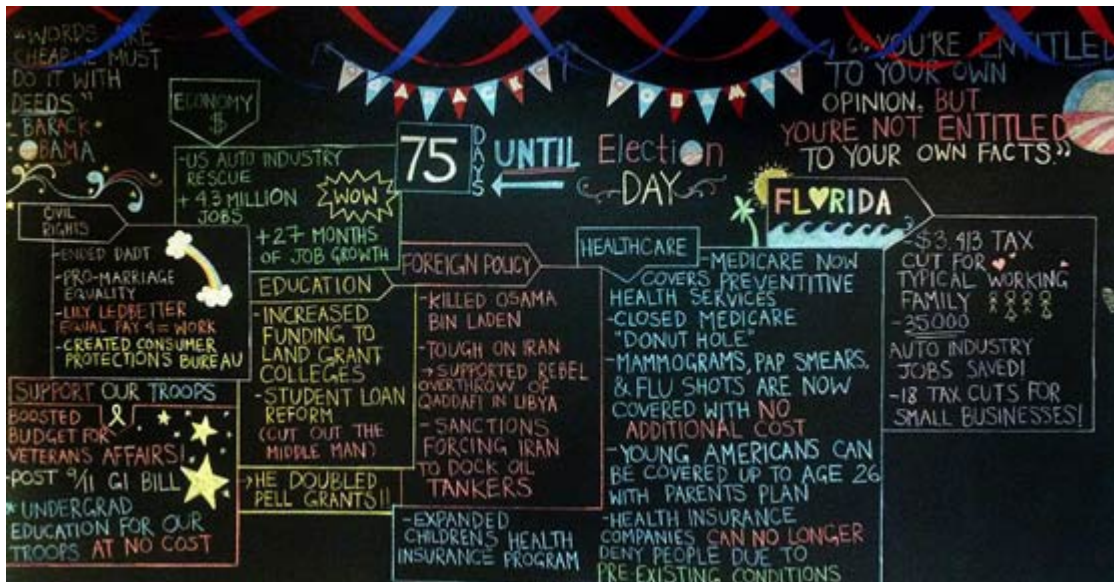 "WORDS ARE
CHEAP. WE MUST
DO IT WITH
DEEDS"
- BARACK
OBAMA
BARACK OBAMA
"YOU'RE ENTITLED
TO YOUR OWN
OPINION, BUT
YOU'RE NOT ENTITLED
TO YOUR OWN FACTS."
75 DAYS UNTIL Election
DAY
ECONOMY
$
-US AUTO INDUSTRY
RESCUE
+ 4.3 MILLION
JOBS
WOW
+27 MONTHS
OF JOB GROWTH
CIVIL
RIGHTS
-ENDED DADT
-PRO-MARRIAGE
EQUALITY
-LILY LEDBETTER
EQUAL PAY 4 = WORK
-CREATED CONSUMER
PROTECTIONS BUREAU
SUPPORT OUR TROOPS
BOOSTED
BUDGET FOR
VETERANS AFFAIRS!
-POST 9/11 GI BILL
* UNDERGRAD
EDUCATION FOR OUR
TROOPS AT NO COST
EDUCATION
-INCREASED
FUNDING TO
LAND GRANT
COLLEGES
-STUDENT LOAN
REFORM
(CUT OUT THE
MIDDLE MAN)
→HE DOUBLED
PELL GRANTS!!
FOREIGN POLICY
-KILLED OSAMA
BIN LADEN
-TOUGH ON IRAN
→SUPPORTED REBEL
OVERTHROW OF
QADDAFI IN LIBYA
-SANCTIONS
FORCING IRAN
TO DOCK OIL
TANKERS
HEALTHCARE
-MEDICARE NOW
COVERS PREVENTITIVE
HEALTH SERVICES
-CLOSED MEDICARE
"DONUT HOLE"
-MAMMOGRAMS, PAP SMEARS,
& FLU SHOTS ARE NOW
COVERED WITH NO
ADDITIONAL COST
-YOUNG AMERICANS CAN
BE COVERED UP TO AGE 26
WITH PARENTS PLAN
-HEALTH INSURANCE
COMPANIES CAN NO LONGER
DENY PEOPLE DUE TO
PRE-EXISTING CONDITIONS
-EXPANDED
CHILDRENS HEALTH
INSURANCE PROGRAM
FLORIDA
-$3,413 TAX
CUT FOR
TYPICAL WORKING
FAMILY
-35000
AUTO INDUSTRY
JOBS SAVED!
-18 TAX CUTS FOR
SMALL BUSINESSES!